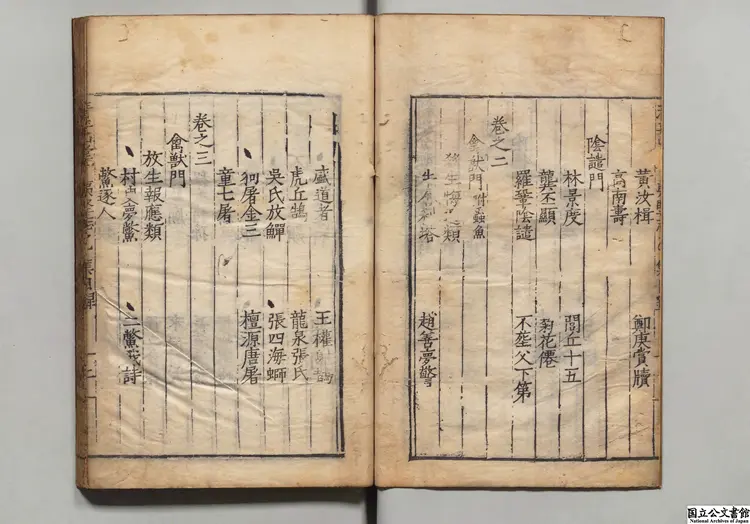 黃汝楫 鄭庚賞牘
高南壽
陰譴門
林景度 閭丘十五
龔丕顯 菊花僊
羅鞏陰譴 不葬父下第
卷之二
禽獸門 附蟲魚
殺生類
趙善夢警
盛道者 王權射鵲
虎丘鵠 龍泉張氏
吳氏放鱓 張四海螄
狗屠金三 檀源唐屠
童七屠
卷之三
禽獸門
放生報應類
村叟夢鱉 二鱉哦詩
鱉逐人
国立公文書館
National Archives of Japan